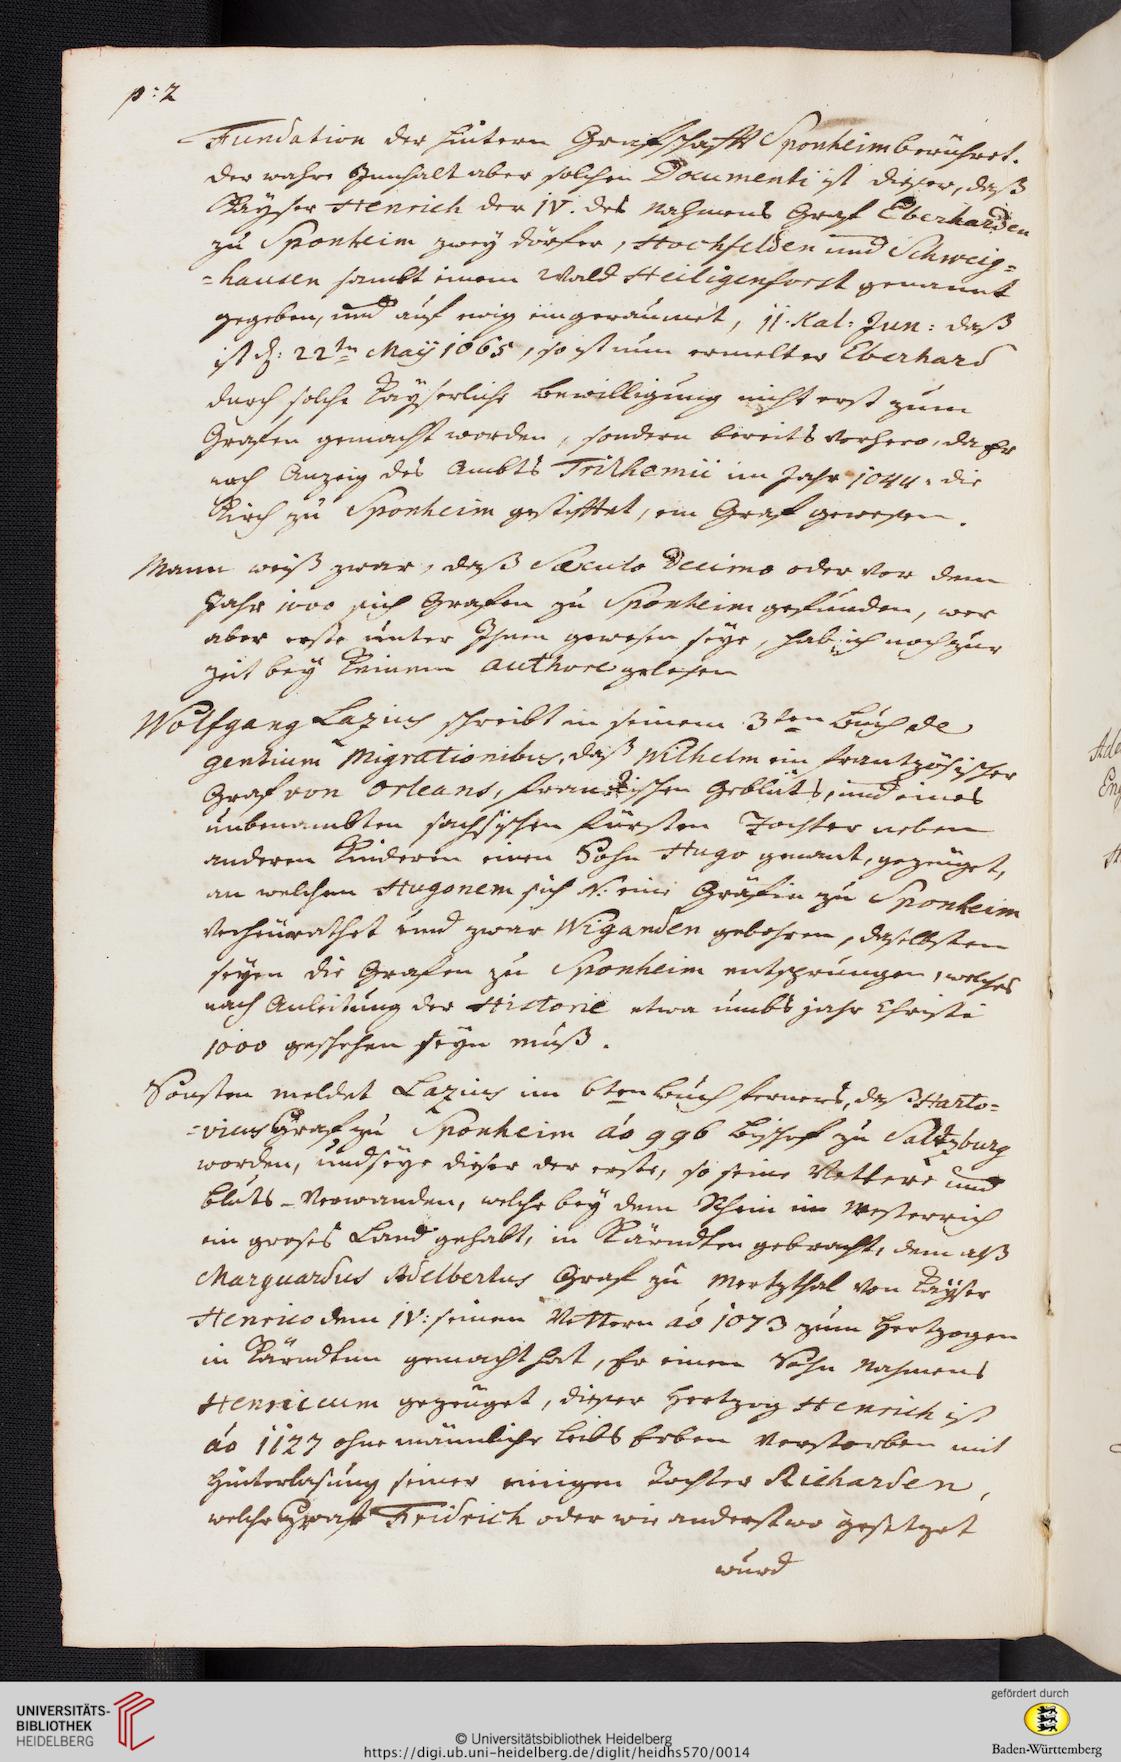 p: 2
Fundation der hintern Graffschafft Sponheim berühret.
der wahre Innhalt aber solchen Documenti ist dieser, daß
Kayser Henrich der IV. des Nahmens Graf Eberharden
zu Sponheim zwey dörfer, Hochfelden und Schweig=
=hausen sambt einem Wald Heiligenforst genannt
gegeben, und auf ewig eingeraumet, 11. Kal: Jun: daß
ist d: 22tn May 1065, so ist nun ermelter Eberhard
durch solche Kayserliche bewilligung nicht erst zum
Grafen gemacht worden, sondern bereits vorhero, da Er
nach Anzeig des Ambts Trithemii im Jahr 1044. die
Kirch zu Sponheim gestifftet, ein Graf gewesen.
Mann weiß zwar, daß Sæculo Decimo oder vor dem
Jahr 1000 sich Grafen zu Sponheim gefunden, wer
aber erste unter Ihnen gewesen seye, hab ich noch zur
zeit bey keinem authore gelesen
Wolfgang Lazius schreibt in seinem 3ten Buch de
gentium Migrationibus, daß Wilhelm ein frantzösischer
Graf von Orleans, franckischen Geblüts, und eines
unbenambten sachsischen fürsten Tochter neben
anderen Kinderen einen Sohn Hugo genant, gezeuget,
an welchen Hugonem sich N: eine Gräfin zu Sponheim
verheurathet und zwar Wiganden gebohren, daselbsten
seyen die Grafen zu Sponheim entsprungen, welches
nach Anleitung der Historie etwa umbs jahr Christi
1000 geschehen seyn muß.
Sonsten meldet Lazius im 6ten Buch ferners, daß Harto=
=vicus Graf zu Sponheim ao 996 Bischof zu Saltzburg
worden, und seye dieser der erste, so seine Vettere und
bluts-Verwanden, welche bey dem Rhein im Westerrich
ein groses Land gehabt, in Kärndten gebracht, dem alß
Marquardus Adelbertus Graf zu Mertzthal von Kayser
Henrico dem IV: seinen Vettern ao 1073 zum Hertzogen
in Kärndten gemacht hat, Er einen Sohn Nahmens
Henricum gezeuget, dieser Hertzog Henrich ist
ao 1127 ohne männliche Leibs Erben verstorben mit
Hinterlasung seiner einigen Tochter Richarden,
welche Graf Fridrich oder wie anderstwo gesetzet
wurd
UNIVERSITÄTS-
BIBLIOTHEK
HEIDELBERG
© Universitätsbibliothek Heidelberg
https://digi.ub.uni-heidelberg.de/diglit/heidhs570/0014
gefördert durch
Baden-Württemberg